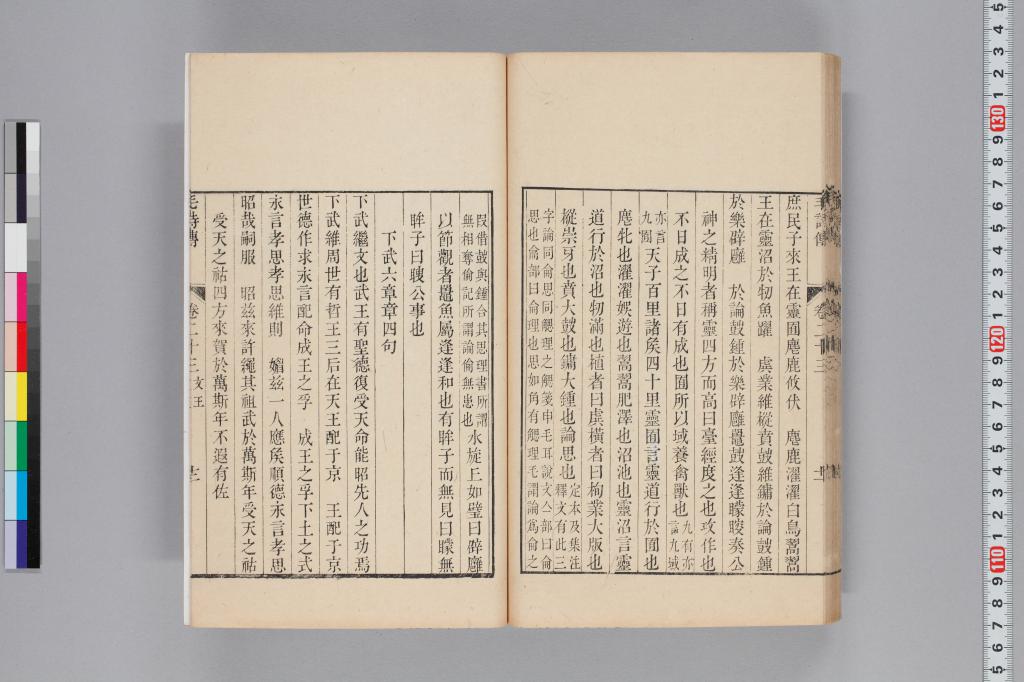 庶民子來王在靈囿麀鹿攸伏　麀鹿濯濯白鳥翯翯
王在靈沼於牣魚躍　虡業維樅賁鼓維鏞於論鼓鍾
於樂辟廱　於論鼓鍾於樂辟廱鼉鼓逢逢矇瞍奏公
神之精明者稱靈四方而高曰臺經度之也攻作也
不日成之不日有成也囿所以域養禽獸也九有亦言九域
亦言九囿天子百里諸矦四十里靈囿言靈道行於囿也
麀牝也濯濯娛遊也翯翯肥澤也沼池也靈沼言靈
道行於沼也牣滿也植者曰虡橫者曰栒業大版也
樅崇牙也賁大鼓也鏞大鍾也論思也定本及集注釋文有此三
字論同侖思同䚡理之䚡箋申毛耳說文亼部曰侖
思也侖部曰侖理也思如角有䚡理毛謂論爲侖之
叚借鼓與鍾合其思理書所謂
無相奪倫記所謂論倫無患也水旋丘如璧曰辟廱
以節觀者鼉魚屬逢逢和也有眸子而無見曰矇無
眸子曰瞍公事也
下武六章章四句
下武繼文也武王有聖德復受天命能昭先人之功焉
下武維周世有哲王三后在天王配于京　王配于京
世德作求永言配命成王之孚　成王之孚下土之式
永言孝思孝思維則　媚茲一人應矦順德永言孝思
昭哉嗣服　昭茲來許繩其祖武於萬斯年受天之祜
受天之祜四方來賀於萬斯年不遐有佐
毛詩傳　卷二十三　文王